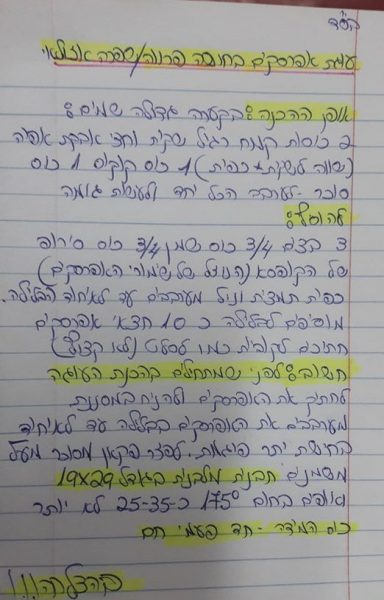 בס"ד
עוגת אפרסקים בחושה פרווה/שפרה אזולאי
אופן ההכנה: בקערה גדולה שמים:
2 כוסות קמח רגיל שקית וחצי אבקת אפיה
(שווה לשקית+כפית) 1 כוס קוקוס 1 כוס
סוכר - לערבב הכל יחד ולעשות גומה
להוסיף:
3 בצים 3/4 כוס שמן 3/4 כוס סירופ
של הקופסא (הנוזל של שימורי האפרסקים)
כפית תמצית וניל מערבבים עד לאיחוד הבלילה.
מוסיפים לבלילה כ 10 חצאי אפרסקים
חתוכים לקוביות כמו לסלט (לא קצוץ)
חשוב: לפני שמתחילים בהכנת העוגה
לחתוך את האפרסקים ולהניח במסננת
מערבבים את האפרסקים בבלילה עד לאיחוד
בחושת יתר פוגמת. לפזר פקאן מסוכר מעל
משמנים תבנית מלבנית בגודל 19X29
ואופים בחום 175° כ-25-35 לא יותר
כוס המידה - חד פעמי חם
בהצלחה!!!